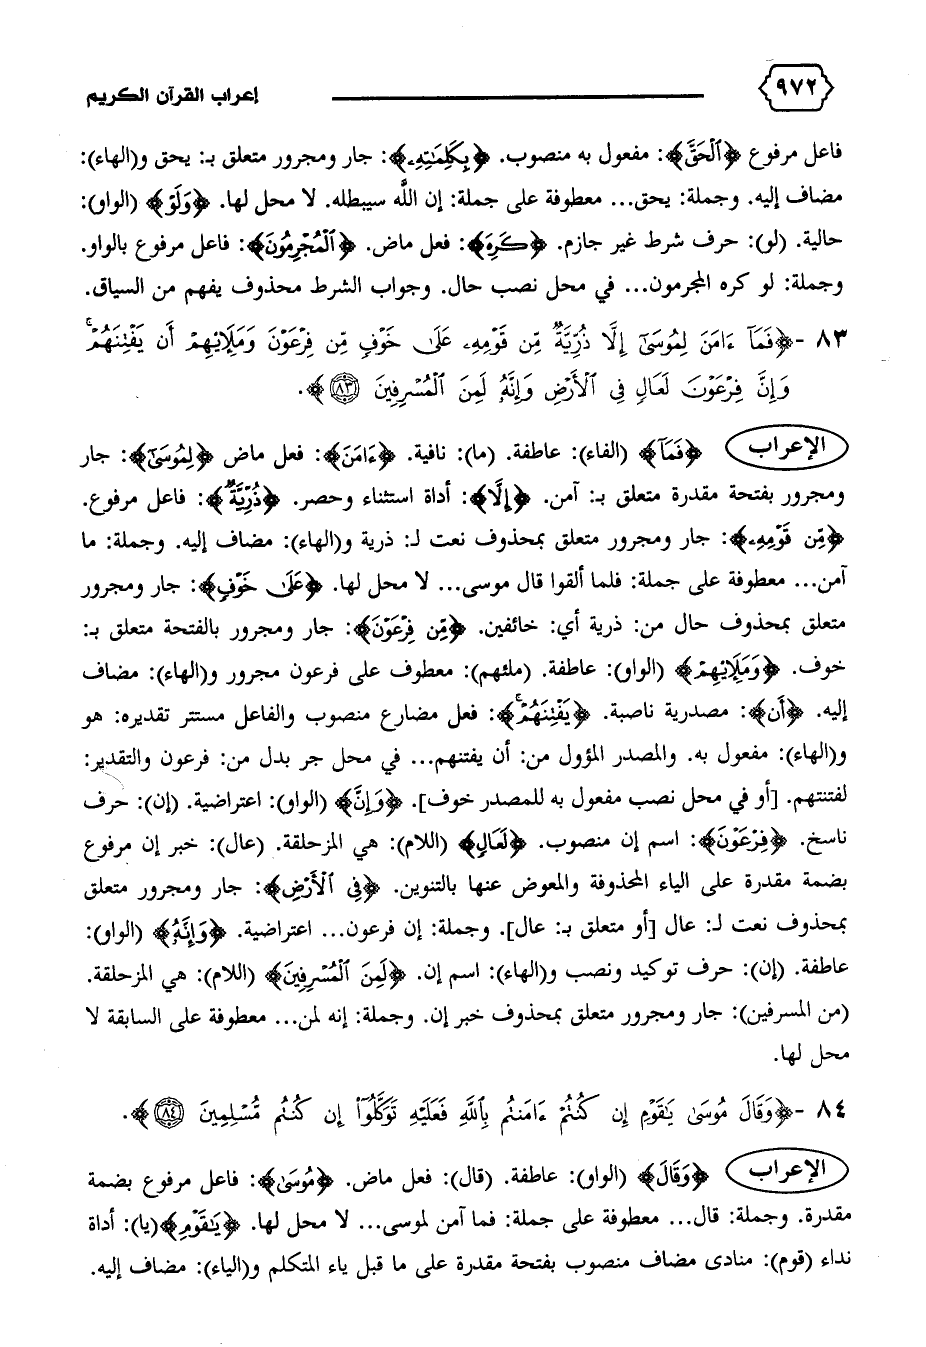 إعراب القرآن الكريم ٩٧٢
فاعل مرفوع ﴿ٱلۡحَقَّ﴾: مفعول به منصوب. ﴿بِكَلِمَٰتِهِۦ﴾: جار ومجرور متعلق بـ: يحق و(الهاء):
مضاف إليه. وجملة: يحق... معطوفة على جملة: إن اللَّه سيبطله. لا محل لها. ﴿وَلَوۡ﴾ (الواو):
حالية. (لو): حرف شرط غير جازم. ﴿كَرِهَ﴾: فعل ماض. ﴿ٱلۡمُجۡرِمُونَ﴾: فاعل مرفوع بالواو.
وجملة: لو كره المجرمون... في محل نصب حال. وجواب الشرط محذوف يفهم من السياق.
٨٣ -﴿فَمَآ ءَامَنَ لِمُوسَىٰٓ إِلَّا ذُرِّيَّةٞ مِّن قَوۡمِهِۦ عَلَىٰ خَوۡفٖ مِّن فِرۡعَوۡنَ وَمَلَإِيْهِمۡ أَن يَفۡتِنَهُمۡۚ
وَإِنَّ فِرۡعَوۡنَ لَعَالٖ فِي ٱلۡأَرۡضِ وَإِنَّهُۥ لَمِنَ ٱلۡمُسۡرِفِينَ ٨٣﴾.
الإعراب ﴿فَمَآ﴾ (الفاء): عاطفة. (ما): نافية. ﴿ءَامَنَ﴾: فعل ماض ﴿لِمُوسَىٰٓ﴾: جار
ومجرور بفتحة مقدرة متعلق بـ: آمن. ﴿إِلَّا﴾: أداة استثناء وحصر. ﴿ذُرِّيَّةٞ﴾: فاعل مرفوع.
﴿مِّن قَوۡمِهِۦ﴾: جار ومجرور متعلق بمحذوف نعت لـ: ذرية و(الهاء): مضاف إليه. وجملة: ما
آمن... معطوفة على جملة: فلما ألقوا قال موسى... لا محل لها. ﴿عَلَىٰ خَوۡفٖ﴾: جار ومجرور
متعلق بمحذوف حال من: ذرية أي: خائفين. ﴿مِّن فِرۡعَوۡنَ﴾: جار ومجرور بالفتحة متعلق بـ:
خوف. ﴿وَمَلَإِيْهِمۡ﴾ (الواو): عاطفة. (ملئهم): معطوف على فرعون مجرور و(الهاء): مضاف
إليه. ﴿أَن﴾: مصدرية ناصبة. ﴿يَفۡتِنَهُمۡۚ﴾: فعل مضارع منصوب والفاعل مستتر تقديره: هو
و(الهاء): مفعول به. والمصدر المؤول من: أن يفتنهم... في محل جر بدل من: فرعون والتقدير:
لفتنتهم. [أو في محل نصب مفعول به للمصدر خوف]. ﴿وَإِنَّ﴾ (الواو): اعتراضية. (إن): حرف
ناسخ. ﴿فِرۡعَوۡنَ﴾: اسم إن منصوب. ﴿لَعَالٖ﴾ (اللام): هي المزحلقة. (عال): خبر إن مرفوع
بضمة مقدرة على الياء المحذوفة والمعوض عنها بالتنوين. ﴿فِي ٱلۡأَرۡضِ﴾: جار ومجرور متعلق
بمحذوف نعت لـ: عال [أو متعلق بـ: عال]. وجملة: إن فرعون... اعتراضية. ﴿وَإِنَّهُۥ﴾ (الواو):
عاطفة. (إن): حرف توكيد ونصب و(الهاء): اسم إن. ﴿لَمِنَ ٱلۡمُسۡرِفِينَ﴾ (اللام): هي المزحلقة.
(من المسرفين): جار ومجرور متعلق بمحذوف خبر إن. وجملة: إنه لمن... معطوفة على السابقة لا
محل لها.
٨٤ -﴿وَقَالَ مُوسَىٰ يَٰقَوۡمِ إِن كُنتُمۡ ءَامَنتُم بِٱللَّهِ فَعَلَيۡهِ تَوَكَّلُوٓاْ إِن كُنتُم مُّسۡلِمِينَ ٨٤﴾.
الإعراب ﴿وَقَالَ﴾ (الواو): عاطفة. (قال): فعل ماض. ﴿مُوسَىٰ﴾: فاعل مرفوع بضمة
مقدرة. وجملة: قال... معطوفة على جملة: فما آمن لموسى... لا محل لها. ﴿يَٰقَوۡمِ﴾(يا): أداة
نداء (قوم): منادى مضاف منصوب بفتحة مقدرة على ما قبل ياء المتكلم و(الياء): مضاف إليه.